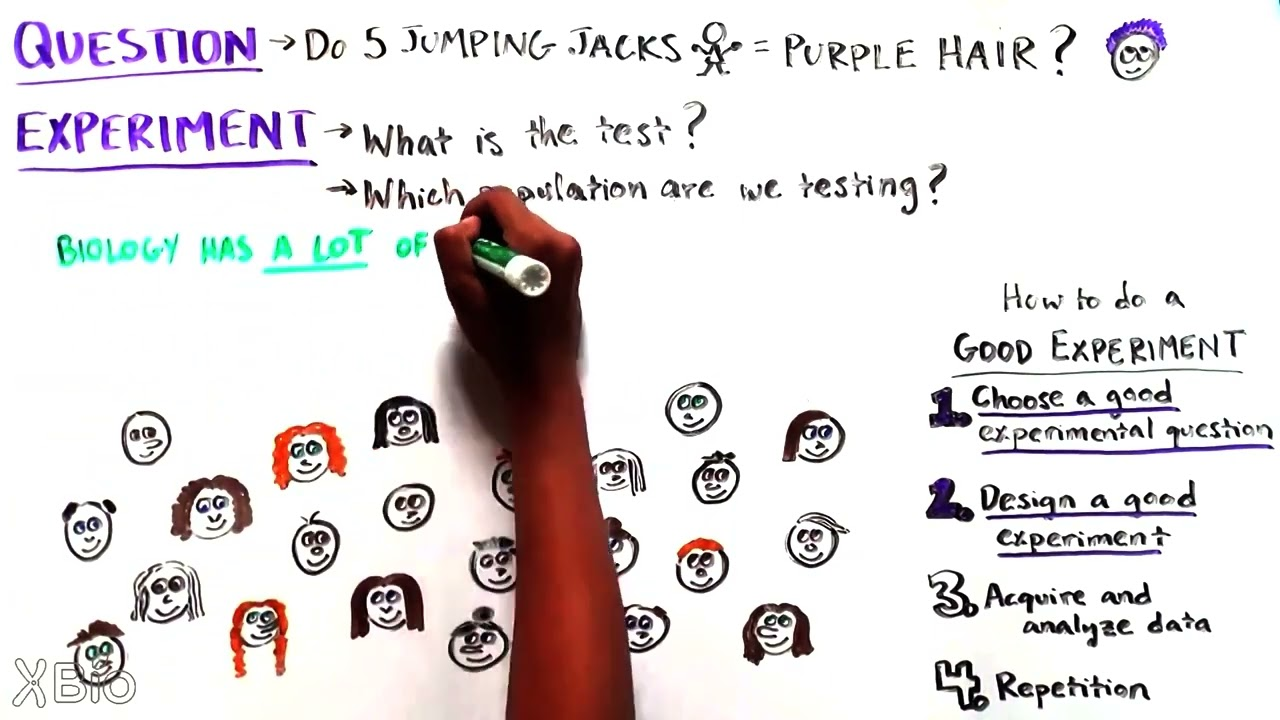 QUESTION → Do 5 JUMPING JACKS = PURPLE HAIR?
EXPERIMENT → What is the test?
→ Which population are we testing?
BIOLOGY HAS A LOT OF
How to do a
GOOD EXPERIMENT
1. Choose a good
experimental question
2. Design a good
experiment
3. Acquire and
analyze data
4. Repetition
XBio